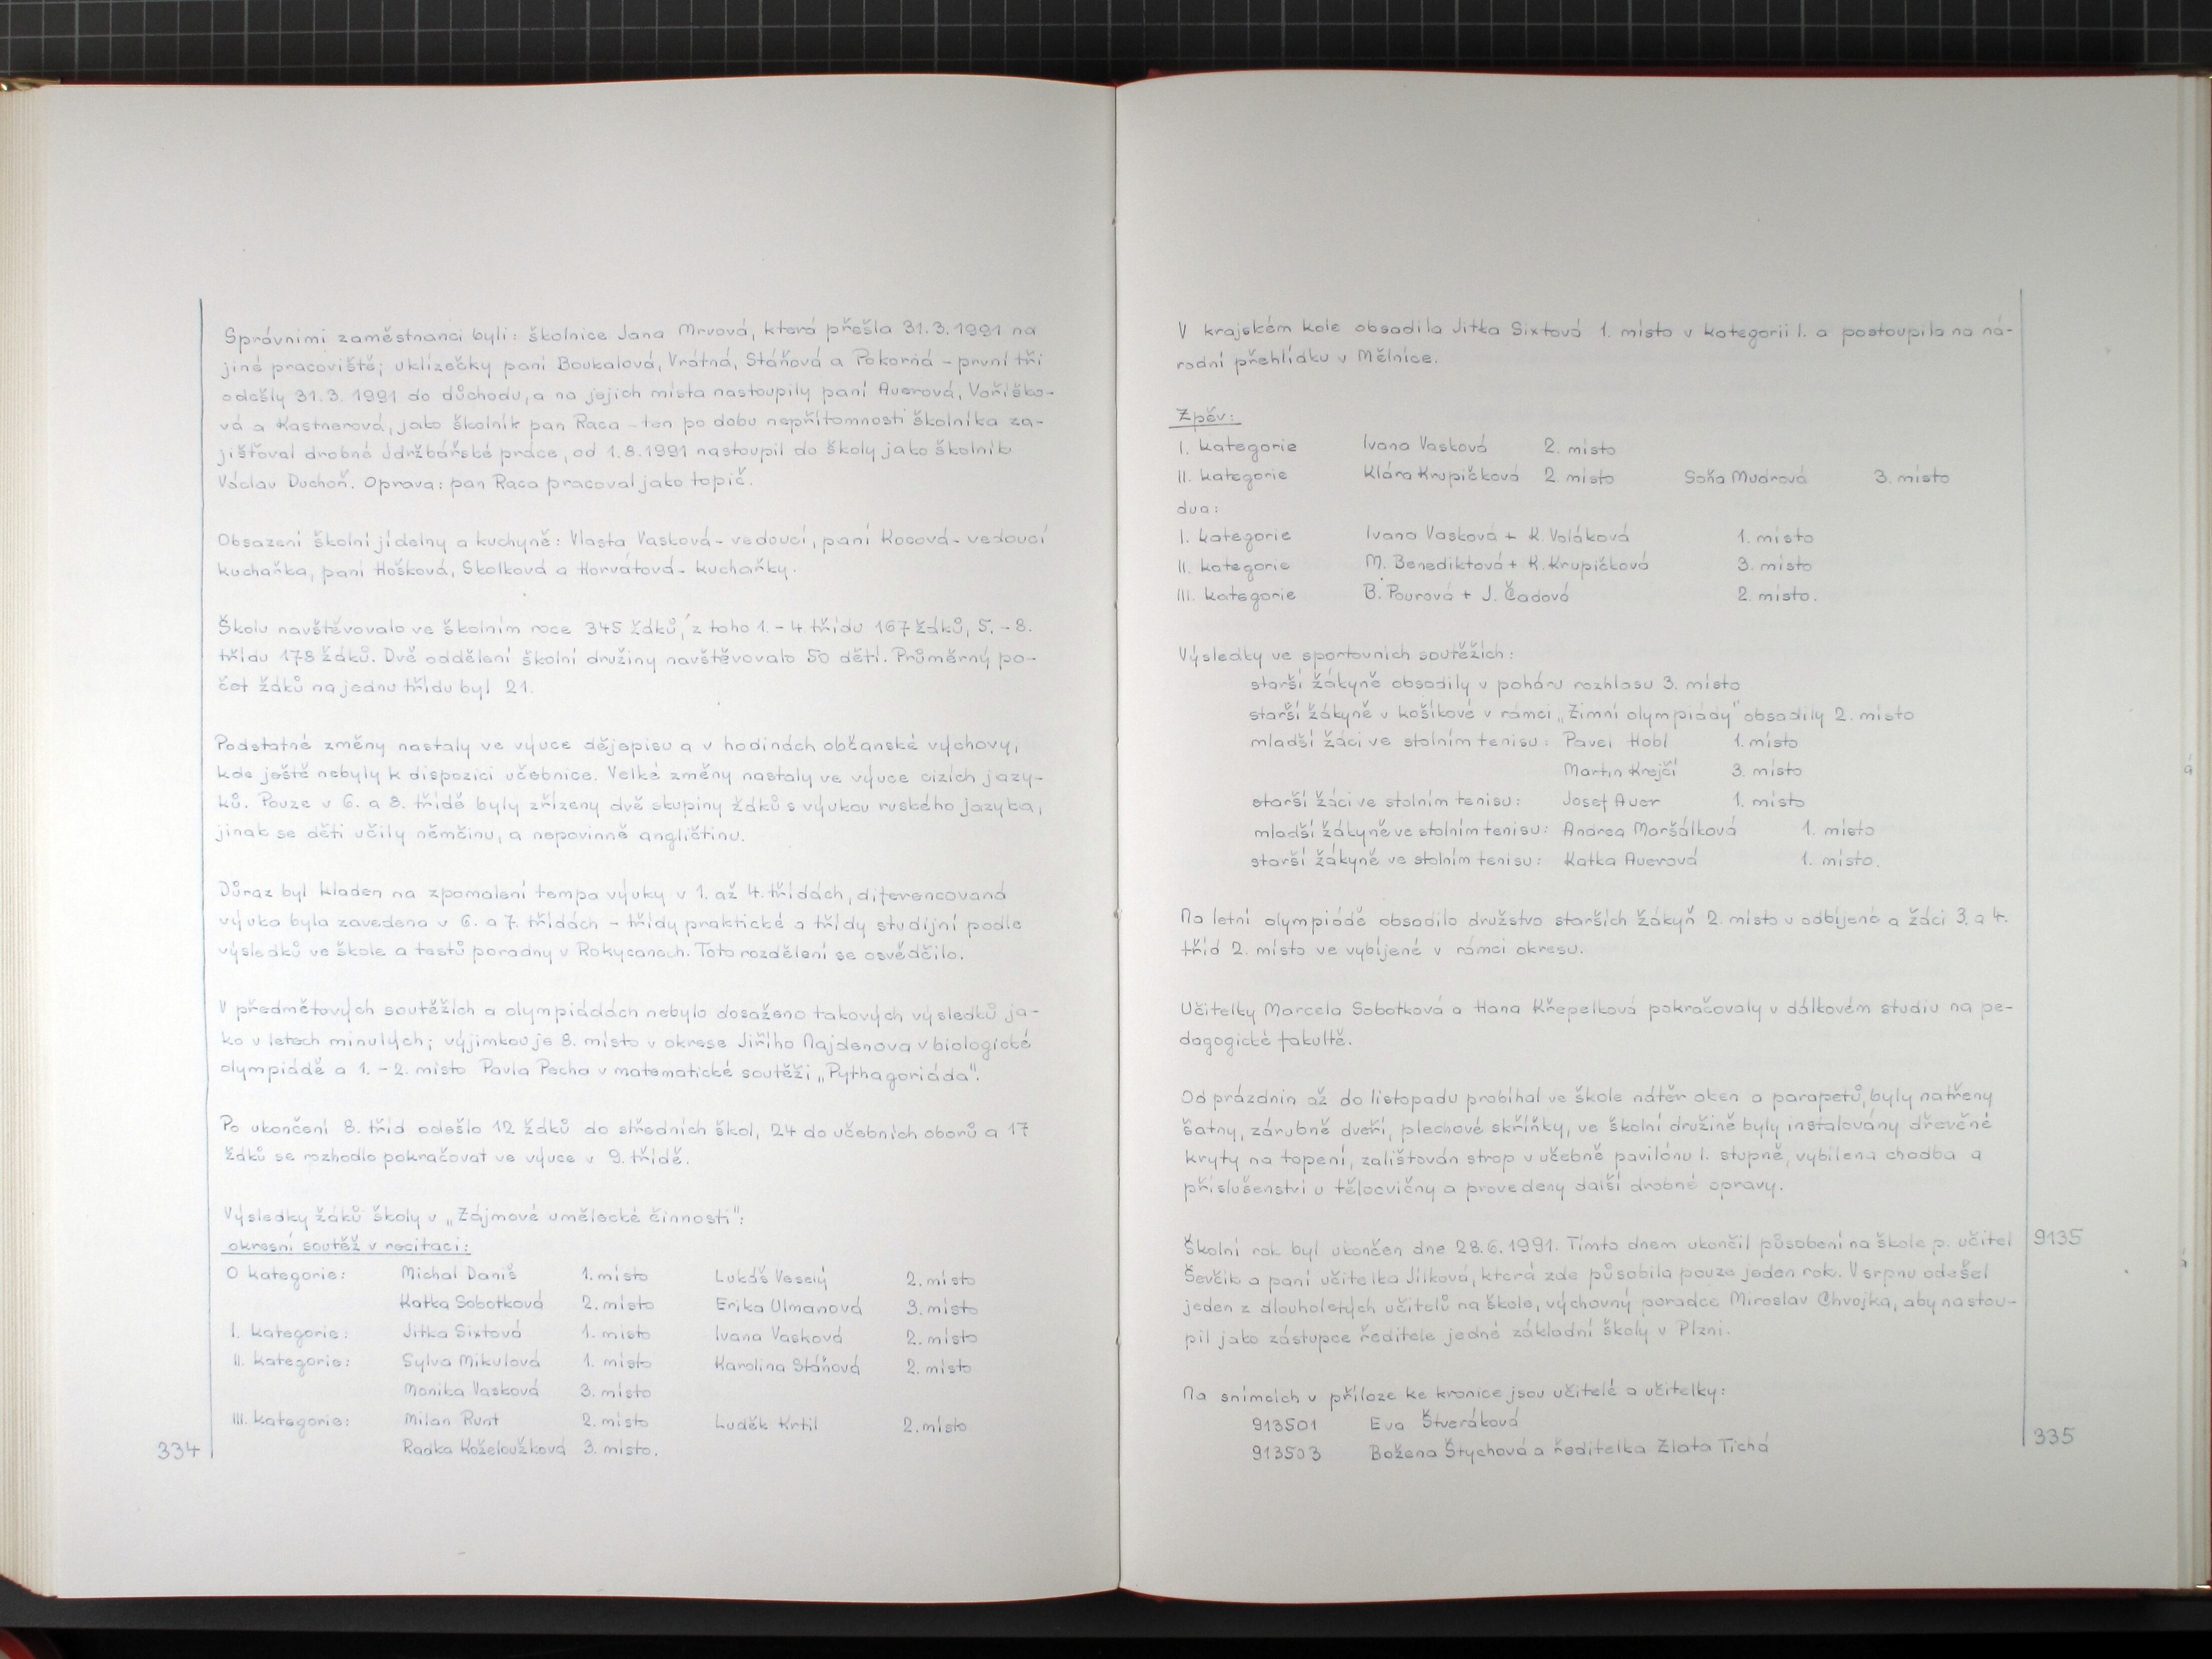 Správními zaměstnanci byli: školnice Jana Mrvová, která přešla 31.3.1991 na
jiné pracoviště; uklízečky paní Boukalová, Vrátná, Stáňová a Pokorná - první tři
odešly 31.3. 1991 do důchodu, a na jejich místa nastoupily paní Auerová, Voříško-
vá a Kastnerová, jako školník pan Raca - ten po dobu nepřítomnosti školníka za-
jišťoval drobné údržbářské práce, od 1.8.1991 nastoupil do školy jako školník
Václav Duchoň. Oprava: pan Raca pracoval jako topič.
Obsazení školní jídelny a kuchyně: Vlasta Vasková - vedoucí, paní Kocová - vedoucí
kuchařka, paní Hošková, Skolková a Horvátová - kuchařky.
Školu navštěvovalo ve školním roce 345 žáků, z toho 1. - 4. třídu 167 žáků, 5. - 8.
třídu 178 žáků. Dvě oddělení školní družiny navštěvovalo 50 dětí. Průměrný po-
čet žáků na jednu třídu byl 21.
Podstatné změny nastaly ve výuce dějepisu a v hodinách občanské výchovy,
kde ještě nebyly k dispozici učebnice. Velké změny nastaly ve výuce cizích jazy-
ků. Pouze v 6. a 8. třídě byly zřízeny dvě skupiny žáků s výukou ruského jazyka,
jinak se děti učily němčinu, a nepovinně angličtinu.
Důraz byl kladen na zpomalení tempa výuky v 1. až 4. třídách, diferencovaná
výuka byla zavedena v 6. a 7. třídách - třídy praktické a třídy studijní podle
výsledků ve škole a testů poradny v Rokycanech. Toto rozdělení se osvědčilo.
V předmětových soutěžích a olympiádách nebylo dosaženo takových výsledků ja-
ko v letech minulých; výjimkou je 8. místo v okrese Jiřího Najdenova v biologické
olympiádě a 1. - 2. místo Pavla Pecha v matematické soutěži „Pythagoriáda".
Po ukončení 8. tříd odešlo 12 žáků do středních škol, 24 do učebních oborů a 17
žáků se rozhodlo pokračovat ve výuce v 9. třídě.
Výsledky žáků školy v „Zájmové umělecké činnosti":
okresní soutěž v recitaci:
0 kategorie: Michal Daniš 1. místo Lukáš Veselý 2. místo
Katka Sobotková 2. místo Erika Ulmanová 3. místo
I. kategorie: Jitka Sixtová 1. místo Ivana Vasková 2. místo
II. kategorie: Sylva Mikulová 1. místo Karolina Stáňová 2. místo
Monika Vasková 3. místo
III. kategorie: Milan Runt 2. místo Luděk Krtil 2. místo
Radka Koželoužková 3. místo.
334
V krajském kole obsadila Jitka Sixtová 1. místo v kategorii I. a postoupila na ná-
rodní přehlídku v Mělníce.
Zpěv:
I. kategorie Ivana Vasková 2. místo
II. kategorie Klára Krupičková 2. místo Soňa Mudrová 3. místo
dua:
I. kategorie Ivana Vasková + K. Voláková 1. místo
II. kategorie M. Benediktová + K. Krupičková 3. místo
III. kategorie B. Pourová + J. Čadová 2. místo.
Výsledky ve sportovních soutěžích:
starší žákyně obsadily v poháru rozhlasu 3. místo
starší žákyně v košíkové v rámci „Zimní olympiády" obsadily 2. místo
mladší žáci ve stolním tenisu: Pavel Hobl 1. místo
Martin Krejčí 3. místo
starší žáci ve stolním tenisu: Josef Auer 1. místo
mladší žákyně ve stolním tenisu: Andrea Maršálková 1. místo
starší žákyně ve stolním tenisu: Katka Auerová 1. místo.
Na letní olympiádě obsadilo družstvo starších žákyň 2. místo v odbíjené a žáci 3. a 4.
tříd 2. místo ve vybíjené v rámci okresu.
Učitelky Marcela Sobotková a Hana Křepelková pokračovaly v dálkovém studiu na pe-
dagogické fakultě.
Od prázdnin až do listopadu probíhal ve škole nátěr oken a parapetů, byly natřeny
šatny, zárubně dveří, plechové skříňky, ve školní družině byly instalovány dřevěné
kryty na topení, zalištován strop v učebně pavilónu I. stupně, vybílena chodba a
příslušenství u tělocvičny a provedeny další drobné opravy.
Školní rok byl ukončen dne 28.6.1991. Tímto dnem ukončil působení na škole p. učitel 9135
Ševčík a paní učitelka Jílková, která zde působila pouze jeden rok. V srpnu odešel
jeden z dlouholetých učitelů na škole, výchovný poradce Miroslav Chvojka, aby nastou-
pil jako zástupce ředitele jedné základní školy v Plzni.
Na snímcích v příloze ke kronice jsou učitelé a učitelky:
913501 Eva Štveráková
913503 Božena Štychová a ředitelka Zlata Tichá
335